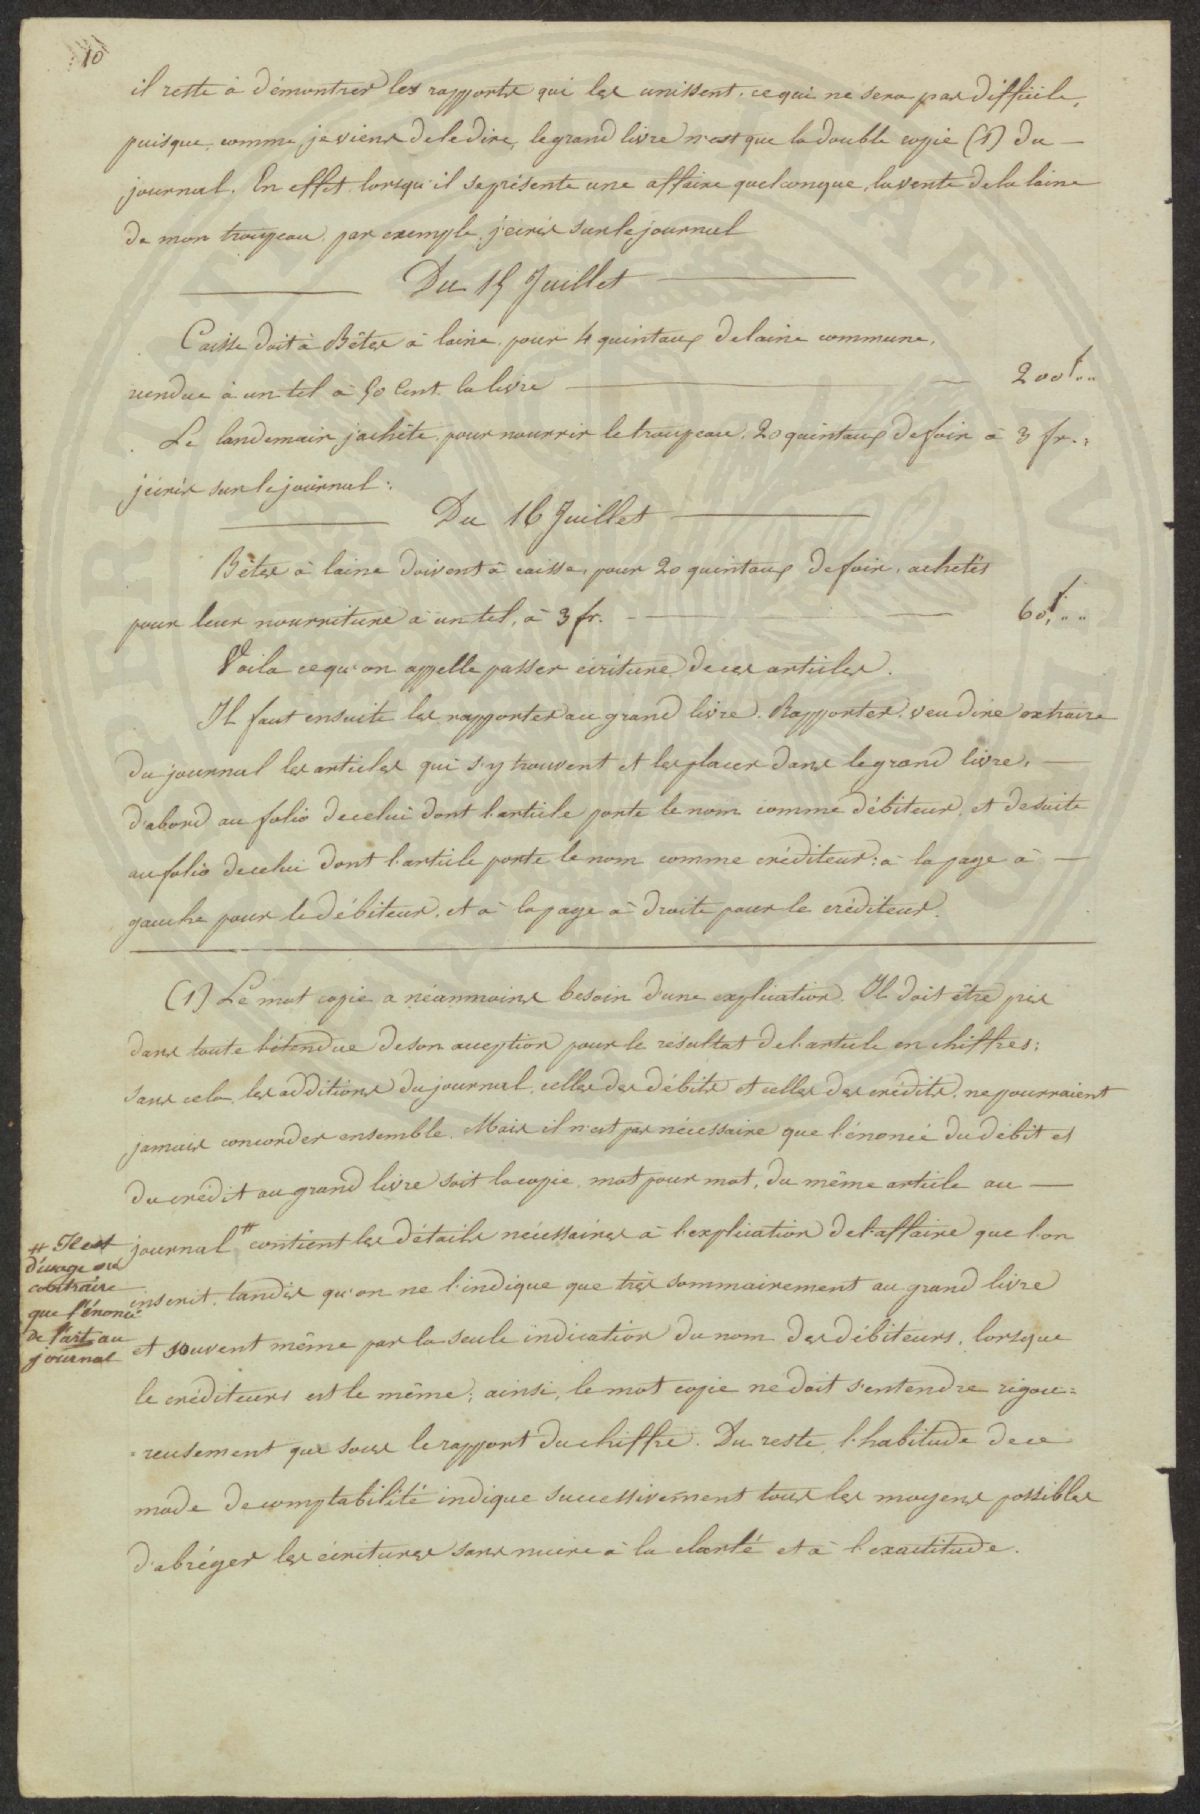 10
il reste à démontrer les rapports qui les unissent, ce qui ne sera pas difficile,
puisque, comme, je viens de le dire, le grand livre n'est que la double copie (1) du —
journal. En effet, lorsqu'il se présente une affaire quelconque, la vente de la laine
de mon troupeau, par exemple, j'écris sur le journal
Du 15 Juillet
Caisse doit à Bêtes à laine, pour 4 quintaux de laine commune,
vendue à un tel à 50 Cent. la livre — 200f..
Le landemain j'achète, pour nourrir le troupeau, 20 quintaux de foin à 3 fr.:
j'écris sur le journal:
Du 16 Juillet
Bêtes à laine doivent à caisse, pour 20 quintaux de foin, achetés
pour leur nourriture à un tel, à 3 fr. — 60f...
Voila ce qu'on appelle passer écriture de ces articles.
Il faut ensuite les rapporter au grand livre. Rapporter, veu dire extraire
du journal les articles qui s'y trouvent et les placer dans le grand livre, —
d'abord au folio de celui dont l'article porte le nom comme débiteur, et de suite
au folio de celui dont l'article porte le nom comme créditeur: à la page à —
gauche pour le débiteur, et à la page à droite pour le créditeur.
(1) Le mot copie a néanmoins besoin d'une explication. Il doit être pris
dans toute l'étendue de son acception pour le résultat de l'article en chiffres:
sans cela, les additions du journal, celles des débits et celles des crédits, ne pourraient
jamais concorder ensemble. Mais il n'est pas nécessaire que l'énoncé du débit et
du crédit au grand livre soit la copie, mot pour mot, du même article au —
journal # contient les détails nécessaires à l'explication de l'affaire que l'on
inscrit, tandis qu'on ne l'indique que très sommairement au grand livre
et souvent même par la seule indication du nom des débiteurs, lorsque
le créditeurs est le même; ainsi, le mot copie ne doit s'entendre rigou=
=reusement que sous le rapport du chiffre. Du reste, l'habitude de ce
mode de comptabilité indique successivement tous les moyens possibles
d'abréger les écritures sans nuire à la clarté et à l'exactitude.
# Il est
d'usage au
contraire
que l'énoncé
de l'art. au
journal